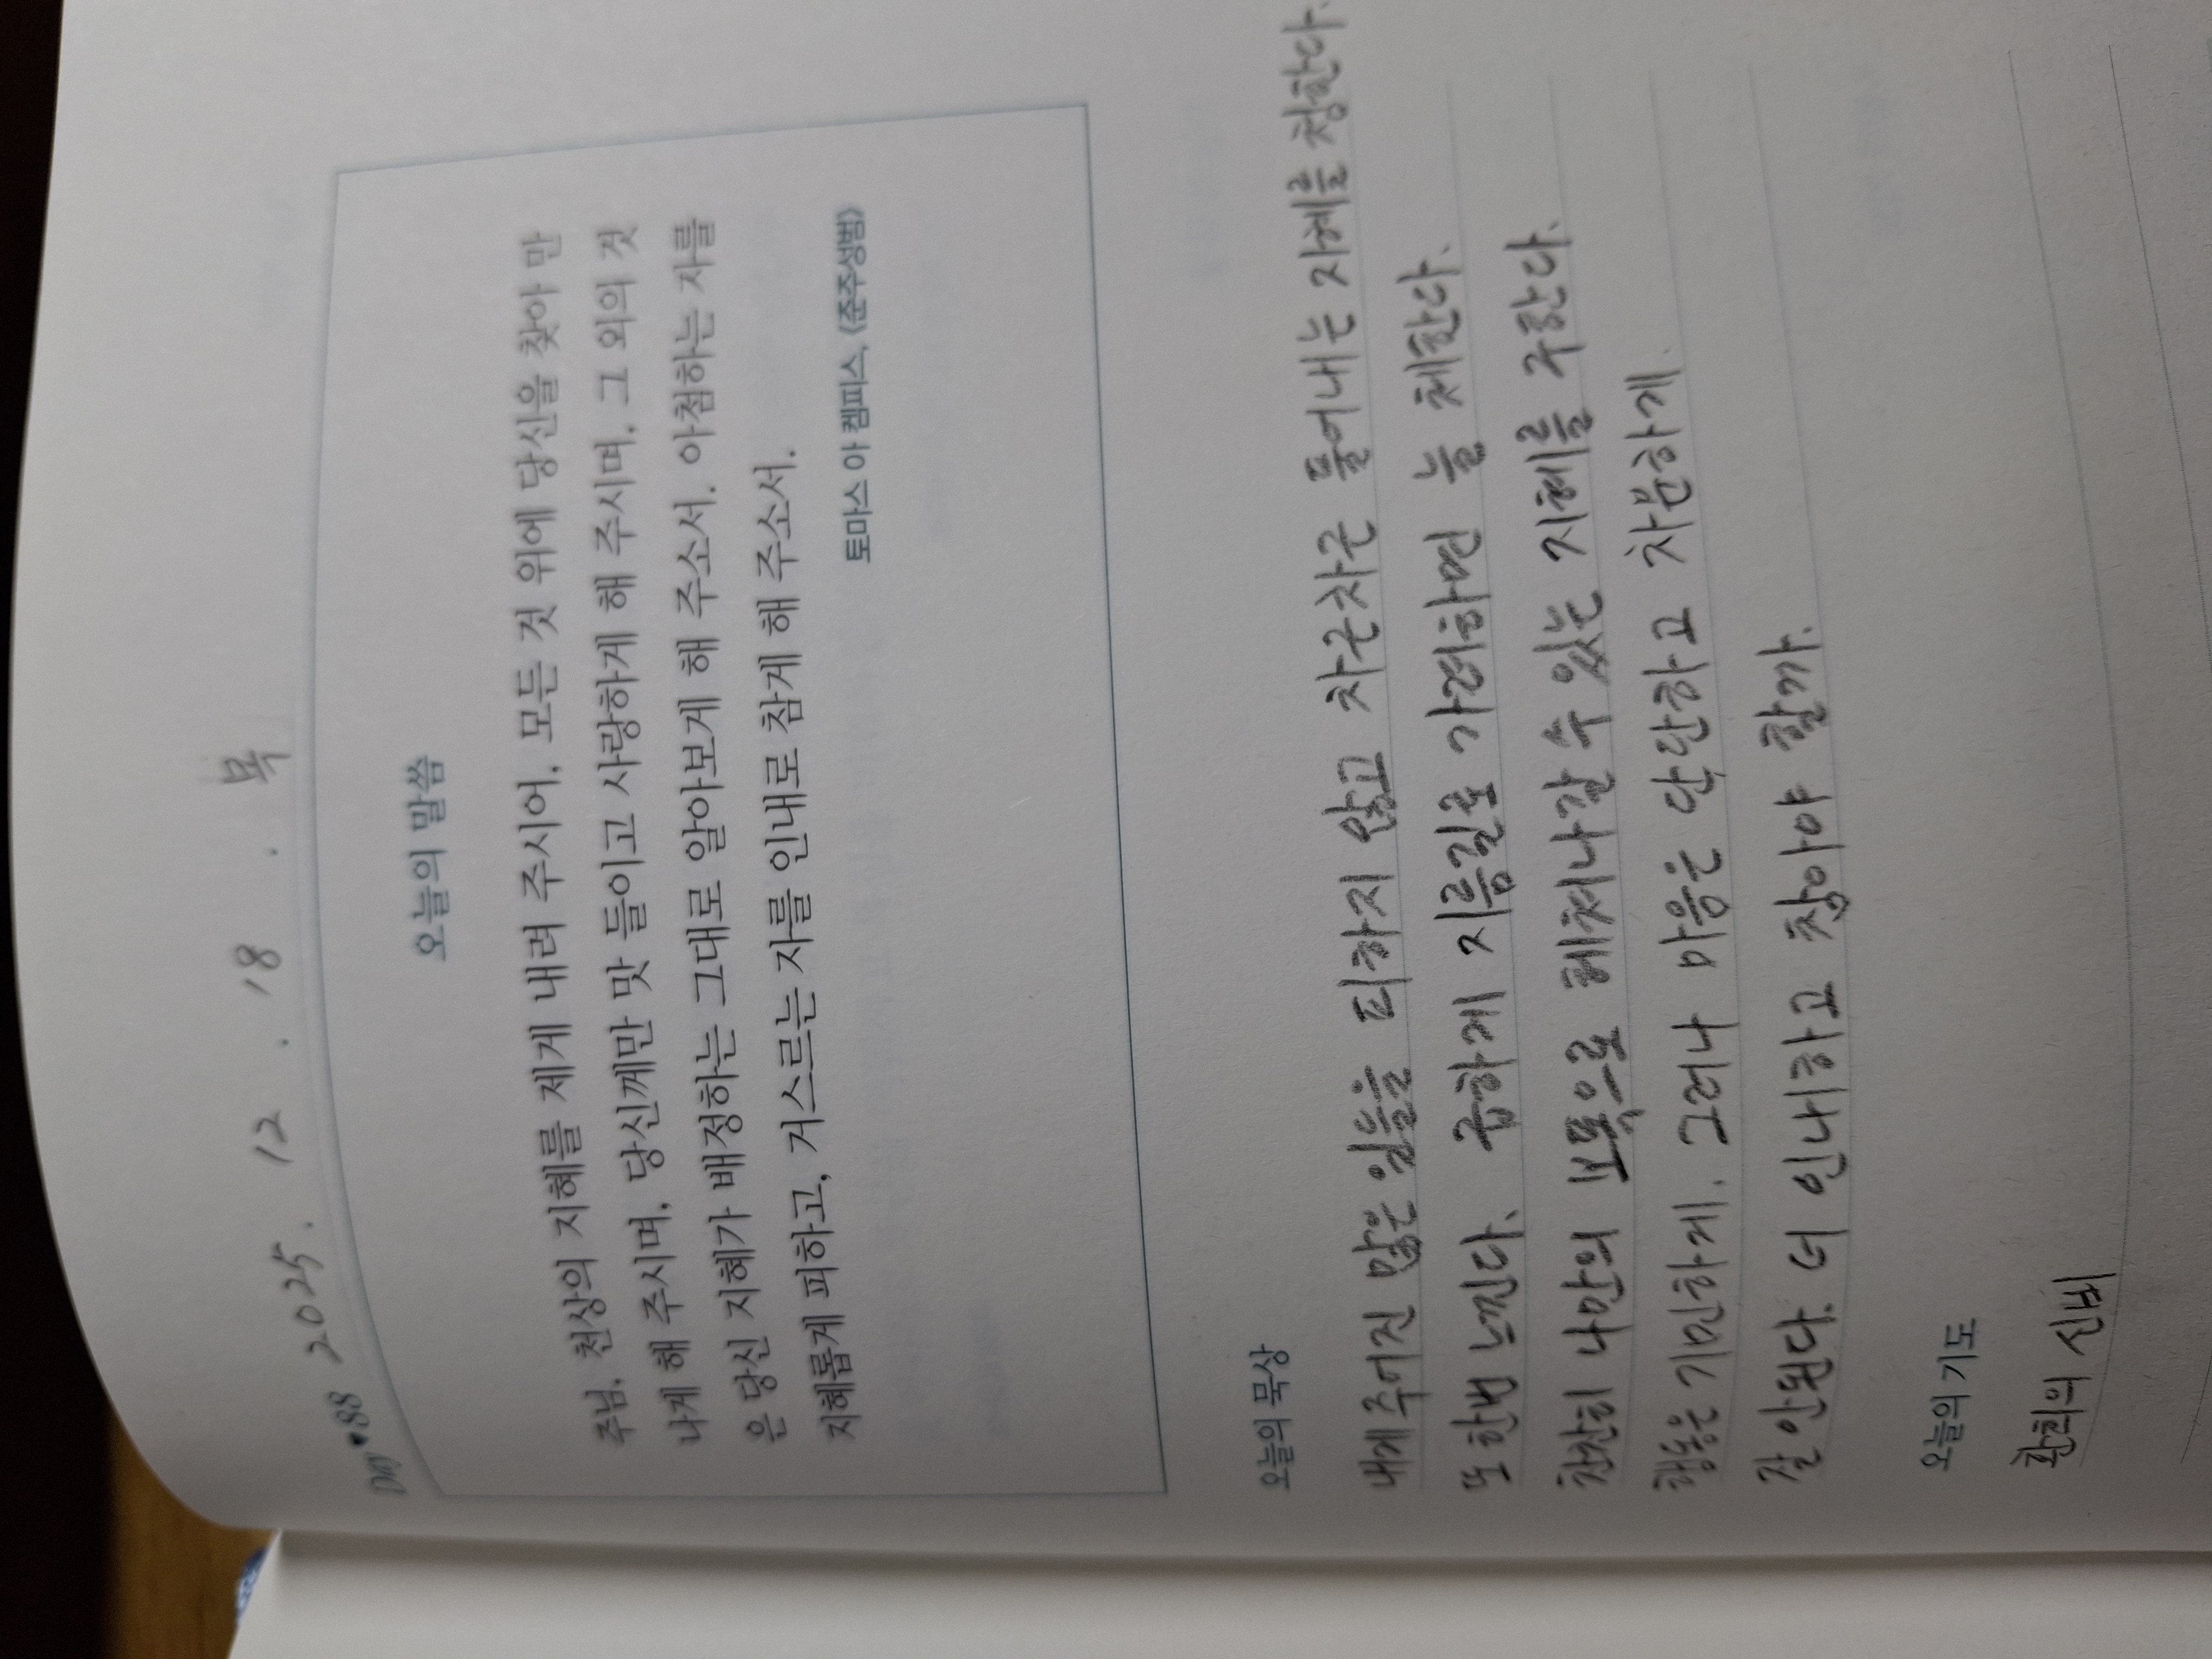 DAY♥88 2025. 12. 18. 목
오늘의 말씀
주님, 천상의 지혜를 제게 내려 주시어, 모든 것 위에 당신을 찾아 만
나게 해 주시며, 당신께만 맛 들이고 사랑하게 해 주시며, 그 외의 것
은 당신 지혜가 배정하는 그대로 알아보게 해 주소서. 아첨하는 자를
지혜롭게 피하고, 거스르는 자를 인내로 참게 해 주소서.
토마스 아 켐피스, 《준주성범》
오늘의 묵상
내게 주어진 많은 일들을 피하지 않고 차근차근 풀어내는 지혜를 청한다.
또 한번 느낀다. 급하게 지름길로 가려하면 늘 체한다.
찬찬히 나만의 보폭으로 헤쳐나갈 수 있는 지혜를 구한다.
행동은 기민하게. 그러나 마음은 단단하고 차분하게.
잘 안된다. 더 인내하고 참아야 할까.
오늘의 기도
환희의 신비